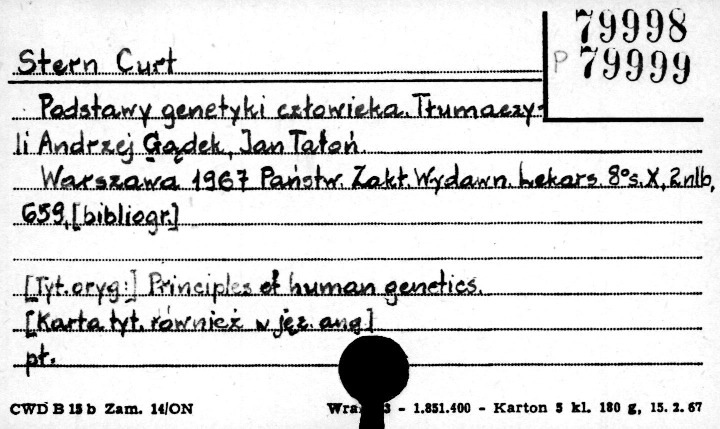 79998
P 79999
Stern Curt
Podstawy genetyki człowieka. Tłumaczy-
li Andrzej Gądek, Jan Tatoń.
Warszawa 1967 Państw. Zakł. Wydawn. Lekars. 8°s. X, 2nlb,
659, [bibliogr.]
[Tyt. oryg:] Principles of human genetics.
[Karta tyt. również w jęz. ang.]
pł.
CWD B 15 b Zam. 14/ON - 1.851.400 - Karton 5 kl. 180 g, 15. 2. 67